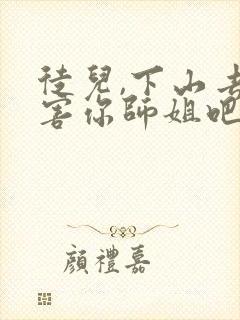 徒兒,下山去
害你師姐吧
顏禮嘉